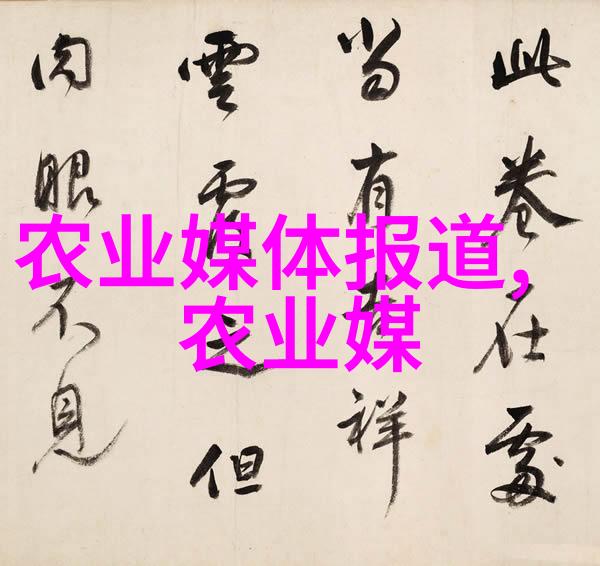 此卷在處
當有吉祥
雲覆之但
肉眼不見
农业媒体报道,
农业媒